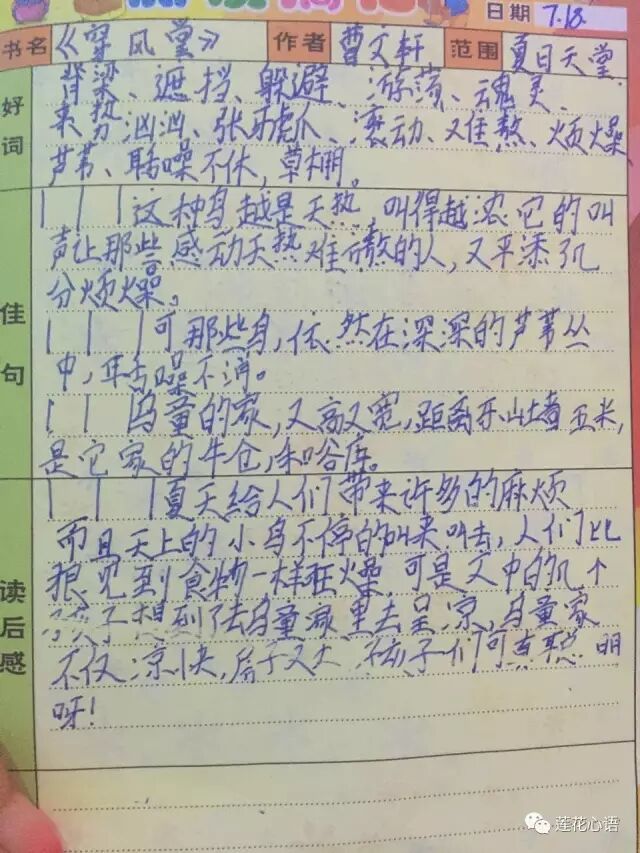 日期 7.18
书名 《穿风堂》 作者 曹文轩 范围 夏日天堂
好词
脊梁、遮挡、躲避、游荡、魂灵、
来势汹汹、张牙舞爪、滚动、难熬、烦燥
芦苇、聒噪不休，草棚。
佳句
这种鸟越是天热，叫得越浓它的叫
声让那些感动天热难熬的人，又平添了几
分烦燥。
可那些鸟，依然在深深的芦苇丛
中，聒噪不消。
乌童的家，又高又宽，距离东山墙五米，
是它家的牛仓，和谷库。
读后感
夏天给人们带来许多的麻烦
而且天上的小鸟不停的叫来叫去，人们比
狼见到食物一样狂燥，可是文中的几个
孩子想到了去乌童家里去呈凉，乌童家
不仅凉快，房子又大，孩子们可真聪明
呀！
莲花心语